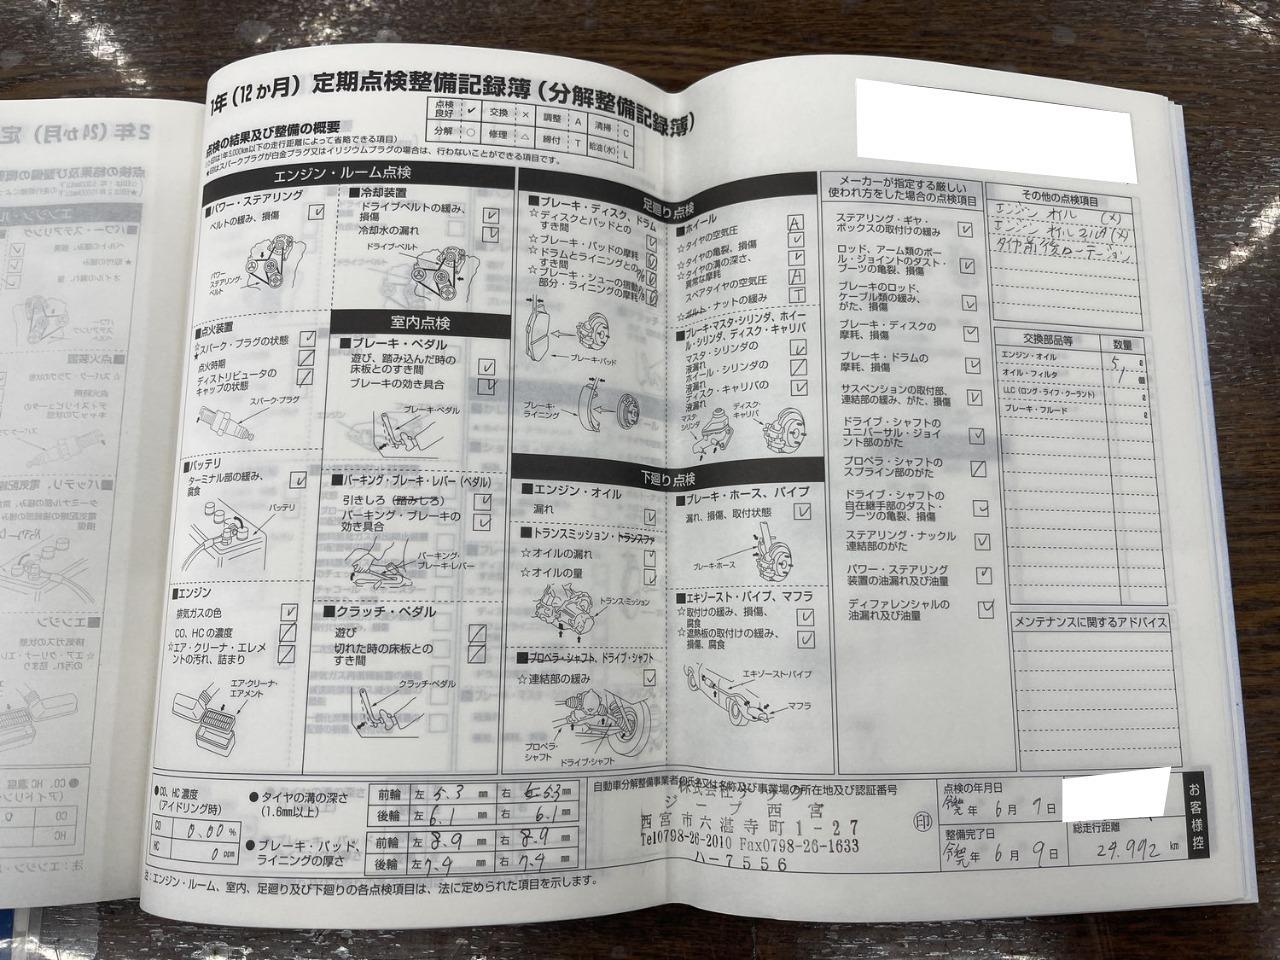 1年(12か月)定期点検整備記録簿(分解整備記録簿)
点検の結果及び整備の概要
★印はスパークプラグが白金プラグ又はイリジウムプラグの場合は、行わないことができる項目です。
点検良好 ✓ 交換 × 調整 A 清掃 C
分解 ○ 修理 △ 締付 T 給油(水) L
エンジン・ルーム点検
■パワー・ステアリング
ベルトの緩み、損傷
パワー・ステアリング・ベルト
■点火装置
スパーク・プラグの状態
点火時期
ディストリビュータのキャップの状態
スパーク・プラグ
■バッテリ
ターミナル部の緩み、腐食
バッテリ
■エンジン
排気ガスの色
CO、HCの濃度
☆エア・クリーナ・エレメントの汚れ、詰まり
エア・クリーナ・エアメント
■冷却装置
ドライブベルトの緩み、損傷
冷却水の漏れ
ドライブ・ベルト
室内点検
■ブレーキ・ペダル
遊び、踏み込んだ時の床板とのすき間
ブレーキの効き具合
ブレーキ・ペダル
■パーキング・ブレーキ・レバー(ペダル)
引きしろ(踏みしろ)
パーキング・ブレーキの効き具合
パーキング・ブレーキ・レバー
■クラッチ・ペダル
遊び
切れた時の床板とのすき間
クラッチ・ペダル
足廻り点検
■ブレーキ・ディスク、ドラム
☆ディスクとパッドとのすき間
☆ブレーキ・パッドの摩耗
☆ドラムとライニングとのすき間
☆ブレーキ・シューの摺動部分・ライニングの摩耗
ブレーキ・パッド
ブレーキ・ライニング
■ホイール
☆タイヤの空気圧 A
☆タイヤの亀裂、損傷
☆タイヤの溝の深さ、異常な摩耗
スペアタイヤの空気圧 A
☆ボルト・ナットの緩み T
■ブレーキ・マスタ・シリンダ、ホイール・シリンダ、ディスク・キャリパ
マスタ・シリンダの液漏れ
ホイール・シリンダの液漏れ
ディスク・キャリパの液漏れ
マスタ・シリンダ
ディスク・キャリパ
下廻り点検
■エンジン・オイル
漏れ
■トランスミッション・トランスファ
☆オイルの漏れ
☆オイルの量
トランス・ミッション
■プロペラ・シャフト、ドライブ・シャフト
☆連結部の緩み
プロペラ・シャフト
ドライブ・シャフト
■ブレーキ・ホース、パイプ
漏れ、損傷、取付状態
ブレーキ・ホース
■エキゾースト・パイプ、マフラ
☆取付けの緩み、損傷、腐食
☆遮熱板の取付けの緩み、損傷、腐食
エキゾースト・パイプ
マフラ
メーカーが指定する厳しい使われ方をした場合の点検項目
ステアリング・ギヤ・ボックスの取付けの緩み
ロッド、アーム類のボール・ジョイントのダスト・ブーツの亀裂、損傷
ブレーキのロッド、ケーブル類の緩み、がた、損傷
ブレーキ・ディスクの摩耗、損傷
ブレーキ・ドラムの摩耗、損傷
サスペンションの取付部、連結部の緩み、がた、損傷
ドライブ・シャフトのユニバーサル・ジョイント部のがた
プロペラ・シャフトのスプライン部のがた
ドライブ・シャフトの自在継手部のダスト・ブーツの亀裂、損傷
ステアリング・ナックル連結部のがた
パワー・ステアリング装置の油漏れ及び油量
ディファレンシャルの油漏れ及び油量
その他の点検項目
エンジン オイル (×)
タイヤ前後ローテーション
交換部品等 数量
エンジン・オイル 5 ℓ
オイル・フィルタ 1 個
LLC (ロング・ライフ・クーラント) ℓ
ブレーキ・フルード ℓ
メンテナンスに関するアドバイス
●CO、HC濃度(アイドリング時)
CO 0.00 %
HC 0 ppm
●タイヤの溝の深さ(1.6mm以上)
前輪 左 5.3 mm 右 5.3 mm
後輪 左 6.1 mm 右 6.1 mm
●ブレーキ・パッド、ライニングの厚さ
前輪 左 8.9 mm 右 8.9 mm
後輪 左 7.4 mm 右 7.4 mm
注:エンジン・ルーム、室内、足廻り及び下廻りの各点検項目は、法に定められた項目を示します。
自動車分解整備事業者の氏名又は名称及び事業場の所在地及び認証番号
ジープ西宮
西宮市六湛寺町1-27
Tel0798-26-2010 Fax0798-26-1633
ハ-7556
印
点検の年月日
令和 年 6 月 7 日
整備完了日
令和 年 6 月 9 日
総走行距離
24.992 km
お客様控
2年(24か月)定